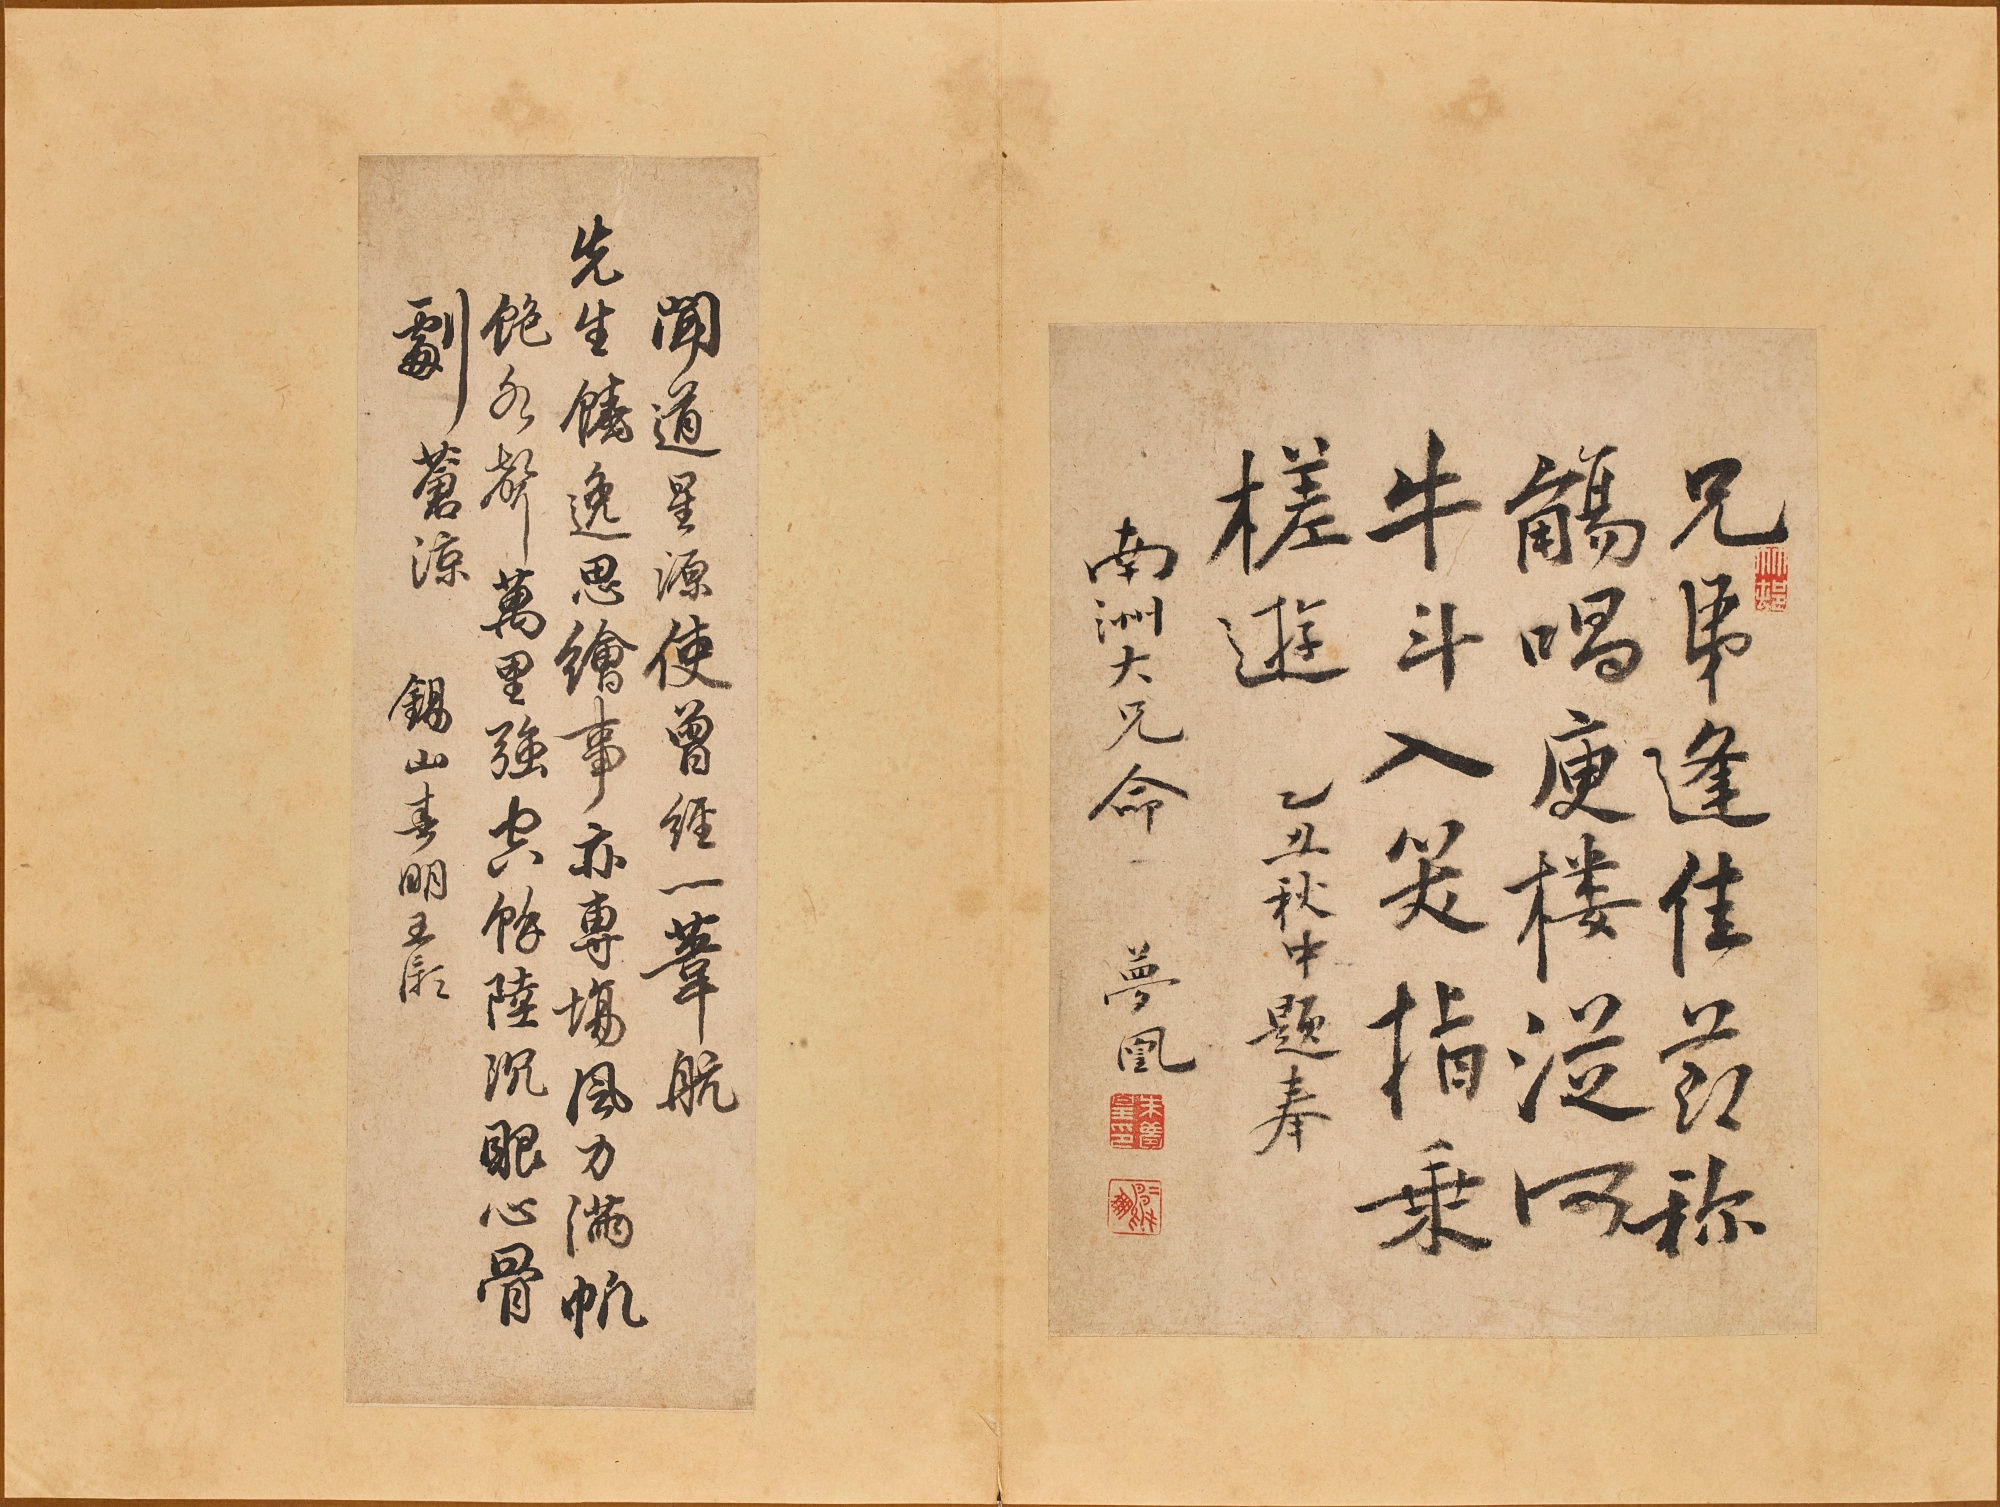 兄弟逢佳節称
觴唱庾楼從何
牛斗入笑指乗
槎遊
乙丑秋中題奉
南洲大兄命
夢凰
聞道星源使曾經一葦航
先生饒逸思繪事亦專場風力滿帆
飽
聲萬里強
陸沉眼心骨
劚蒼涼
錫山春明王